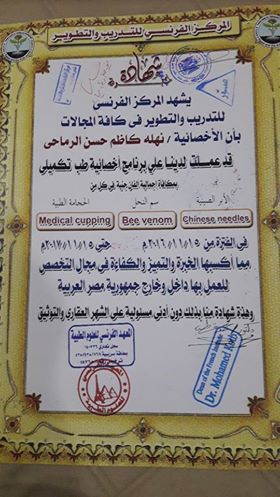 المركز الفرنسى للتدريب والتطوير
شهادة
يشهد المركز الفرنسى
للتدريب والتطوير فى كافة المجالات
بأن الأخصائية / نهله كاظم حسن الرماحى
قد عملت لدينا على برنامج إخصائية طب تكميلى
بمكافأة إجمالية الفان جنية فى كل من
الأبر الصينية سم النحل الحجامة الطبية
Chinese needles Bee venom Medical cupping
فى الفترة من ٢٠١٦/١١/٥ حتى ٢٠١٧/١١/٥
مما أكسبها الخبرة والتميز والكفاءة فى مجال التخصص
للعمل بها داخل وخارج جمهورية مصر العربية
وهذة شهادة منا بذلك دون أدنى مسئولية على الشهر العقارى والتوثيق
المعهد الفرنسى للعلوم الطبية
Dr. Mohamed